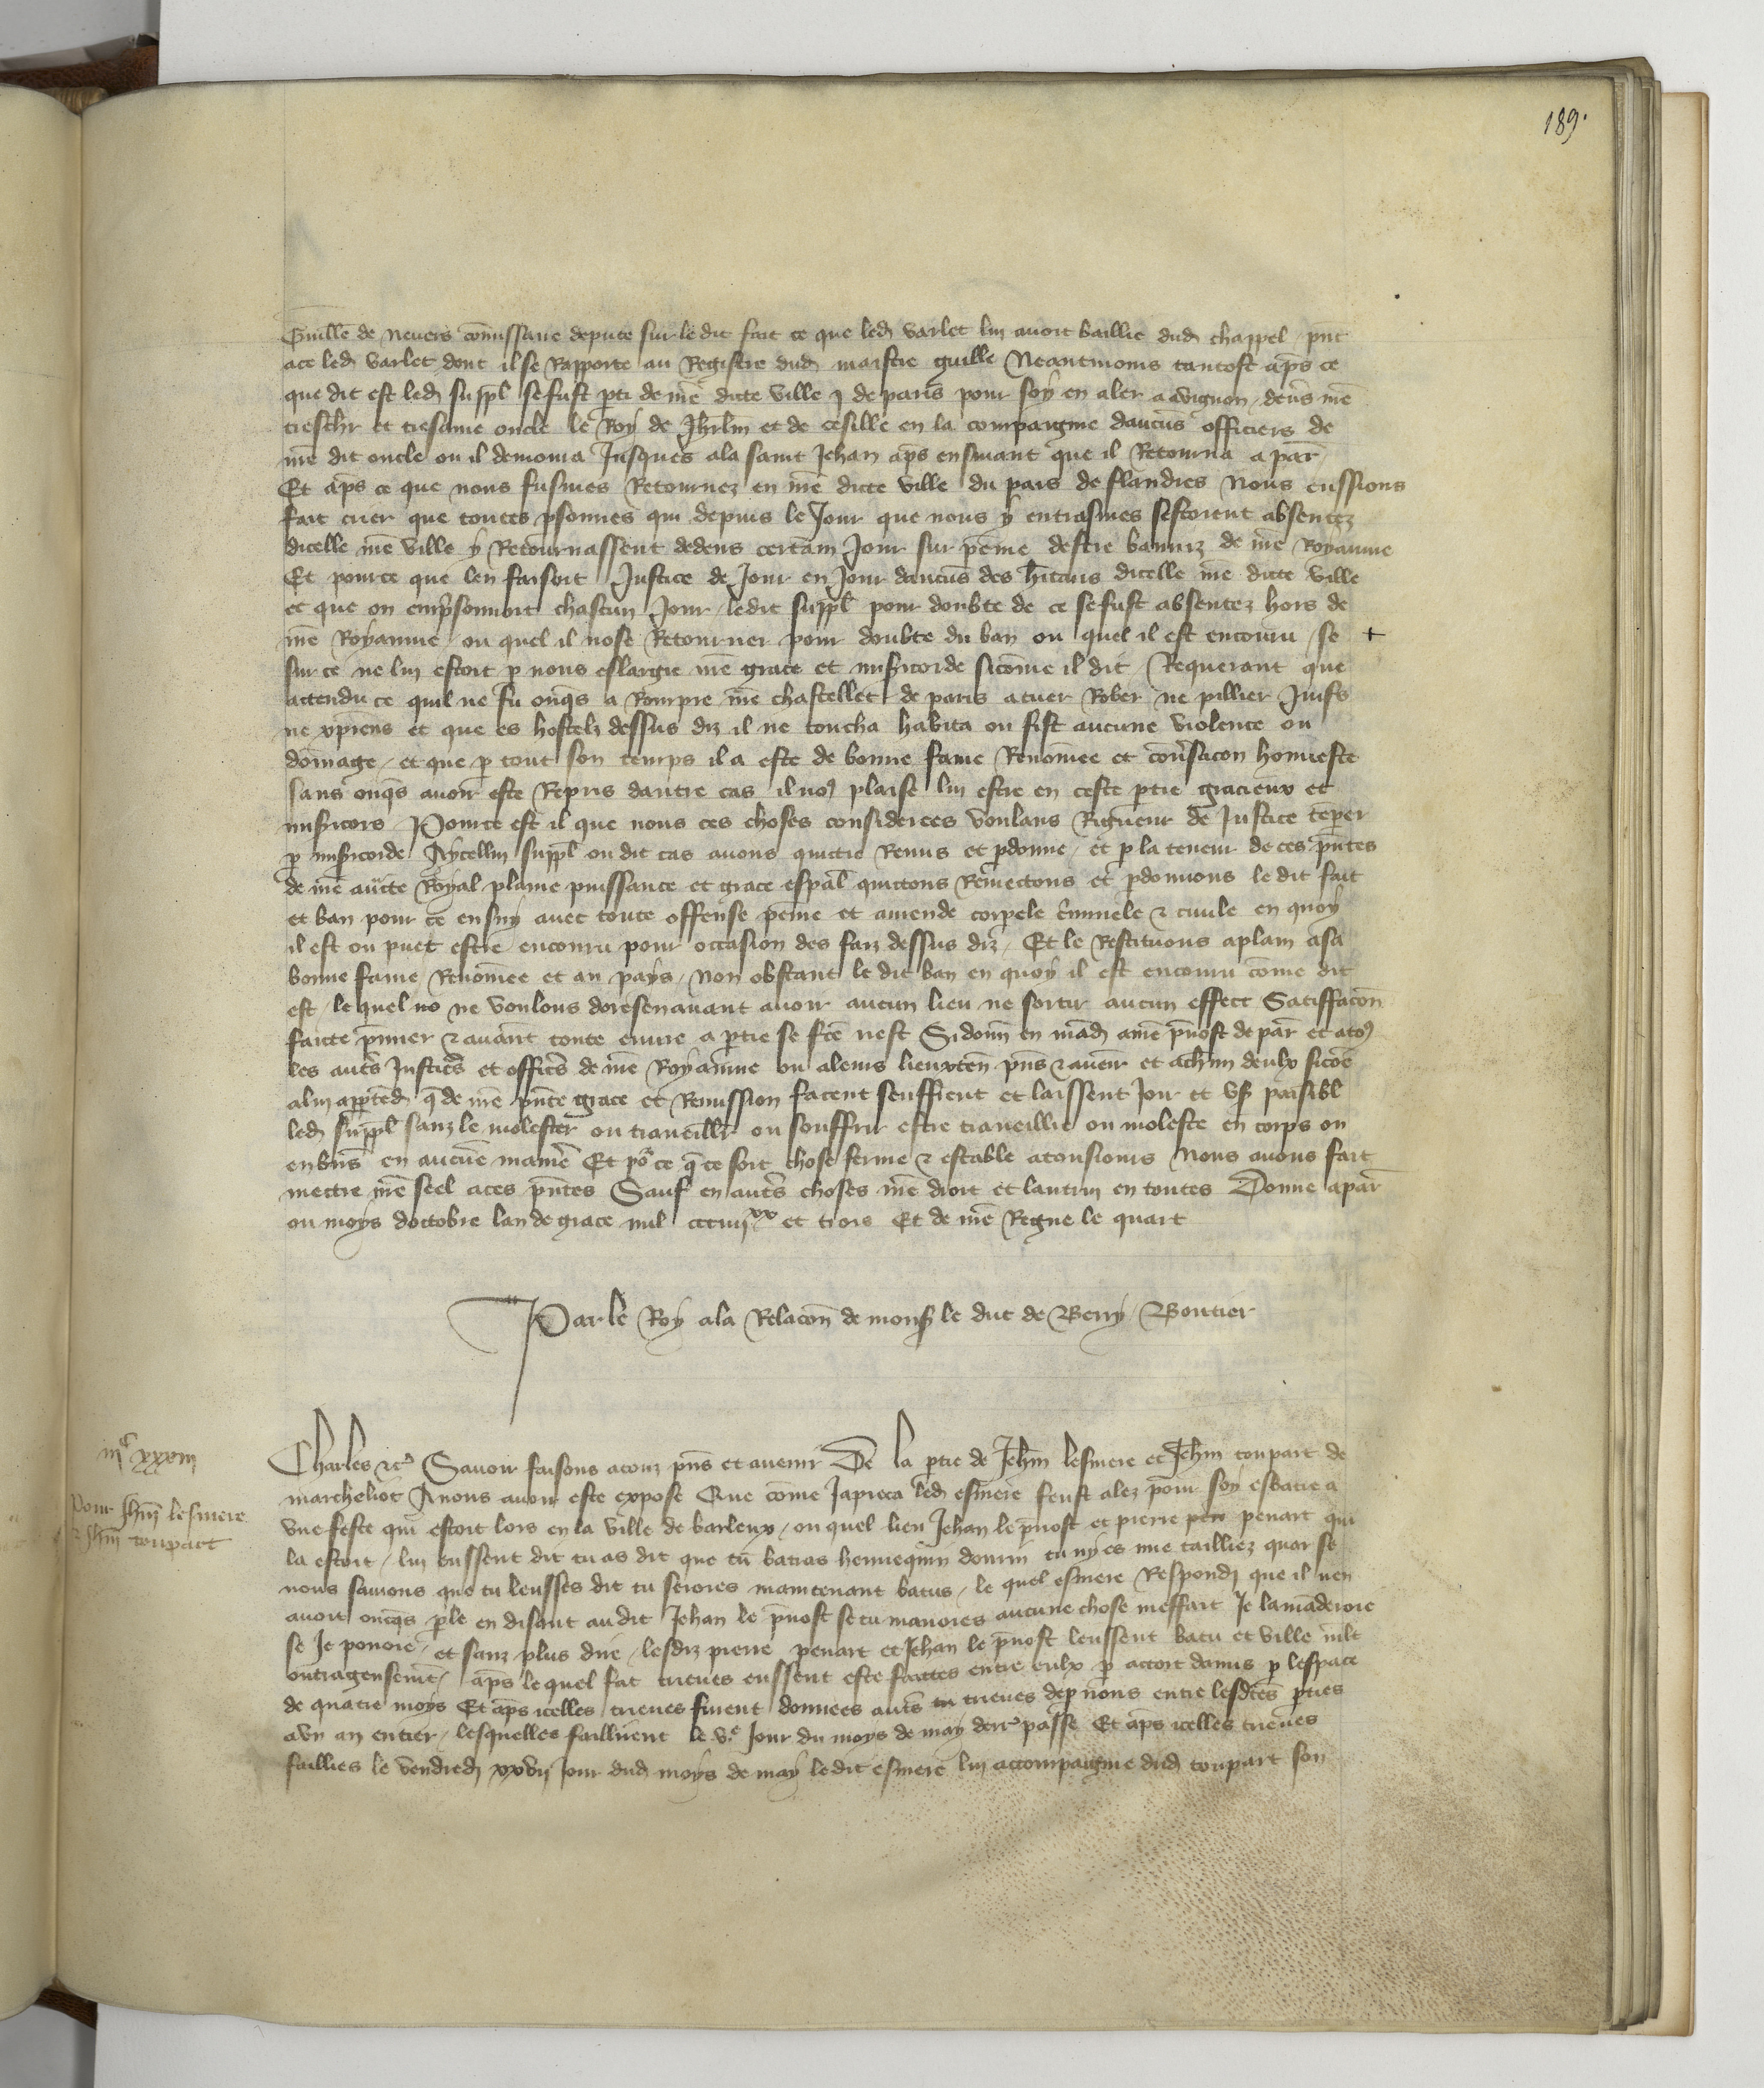 189.
Guille de Nevers cōmissaire depute sur le dit fait ce que led varlet lui avoit baillie dud chappel pnt
ace led varlet dont il se Rapporte au Registre dud maistre guille Neantmoins tantost aps ce
que dit est led suppl se fust pti de nre dicte ville de paris pour soy en aler a avignon devs nre
treschr et tresame oncle le Roy de Jhrlm et de cesille en la compaignie daucuns officiers de
nre dit oncle ou il demoura Jusques ala saint Jehan aps ensuivant que il Retourna a par
Et aps ce que nous fusmes Retournez en nre dicte ville du pais de flandres Nous eussions
fait crier que toutes psonnes qui depuis le Jour que nous y entrasmes sestoient absentez
dicelle nre ville y Retournassent dedens certain Jour sur peine destre banniz de nre Royaume
Et pource que len faisoit Justice de Jour en Jour daucuns des hitans dicelle nre dicte ville
et que on emprisonnoit chascun Jour ledit suppl pour doubte de ce se fust absentez hors de
nre Royaume ou quel il nose Retourner pour doubte du ban ou quel il est encouru se +
sur ce ne lui estoit p nous eslargie nre grace et misicorde sicōme il dit Requerant que
attendu ce quil ne fu onqs a Rompre nre chastellet de paris atuer Rober ne pillier Juifs
ne xpiens et que es hostelz dessus diz il ne toucha habita ou fist aucune violence ou
dōmage et que p tout son temps il a este de bonne fame Renōmee et convsacon honneste
sans onqs avoir este Repris dautre cas il no9 plaise lui estre en ceste ptie gracieux et
misicors Pource est il que nous ces choses considerees voulans Rigueur de Justice temper
p misicorde Aycellui suppl ou dit cas avons quictie Remis et pdonne et p la teneur de ces pntes
de nre aucte Royal plaine puissance et grace espal quictons Remectons et pdonnons le dit fait
et ban pour ce ensuy avec toute offense peine et amende corpele criminele & civile en quoy
il est ou puet estre encouru pour occasion des faiz dessus diz Et le Restituons aplain asa
bonne fame Renōmee et au pays Non obstant le dit ban en quoy il est encouru cōme dit
est le quel no ne voulons doresenavant avoir aucun lieu ne sortir aucun effect Satiffacon
faicte pmier & avant toute euvre a ptie se fcē nest Si donn en mad a nre pvost de par et ato9
les auts Justics et offics de nre Royaume ou aleurs lieuxten pns & avenir et achun deulx sicōe
alui apptēd q de nre pnte grace et Remission facent seuffrent et laissent Jor et us paisibl
led suppl sanz le molester ou traveillr ou souffrir estre traveillie ou moleste en corps ou
en bns en aucune maniē Et po ce q ce soit chose ferme & estable atousjours Nous avons fait
mectre nre seel aces pntes Sauf en auts choses nre droit et lautrui en toutes Donne apar
ou moys doctobre lan de grace mil cccıııı xx et trois Et de nre Regne le quart
Par le Roy ala Relacon de mons le duc de Berry Bontier
iijc xxxiij
Pour Jhm lesmere
& Jhm toupart
Charles &c Savoir faisons atouz pns et avenir De la ptie de Jehm lesmere et Jehm toupart de
marcheliot Anous avoir este expose Que cōme Japieca led esmere feust alez pour soy esbatre a
une feste qui estoit lors en la ville de barleux ou quel lieu Jehan le pvost et pierre pen penart qui
la estoit lui eussent dit tu as dit que tu batras hennequin dourin tu ny es mie tailliez quar se
nous savions que tu leusses dit tu seroies maintenant batus le quel esmere Respondi que il nen
avoit onqs ple en disant audit Jehan le pvost se tu mavoies aucune chose meffait Je lamāderoie
se Je povoie et sanz plus dire lesdiz pierre penart et Jehan le pvost leussent batu et ville mlt
outrageusemt aps le quel fait treues eussent este faictes entre eulx p actort damis p lespace
de quatre moys Et aps icelles treues furent donnees auts tr treues dep nous entre lesdtes pties
aun an entier lesquelles faillirent le ve Jour du moys de may derr passe Et aps icelles treues
faillies le vendredi xxvii Jour dud moys de may ledit esmere lui accompaignie dud toupart son